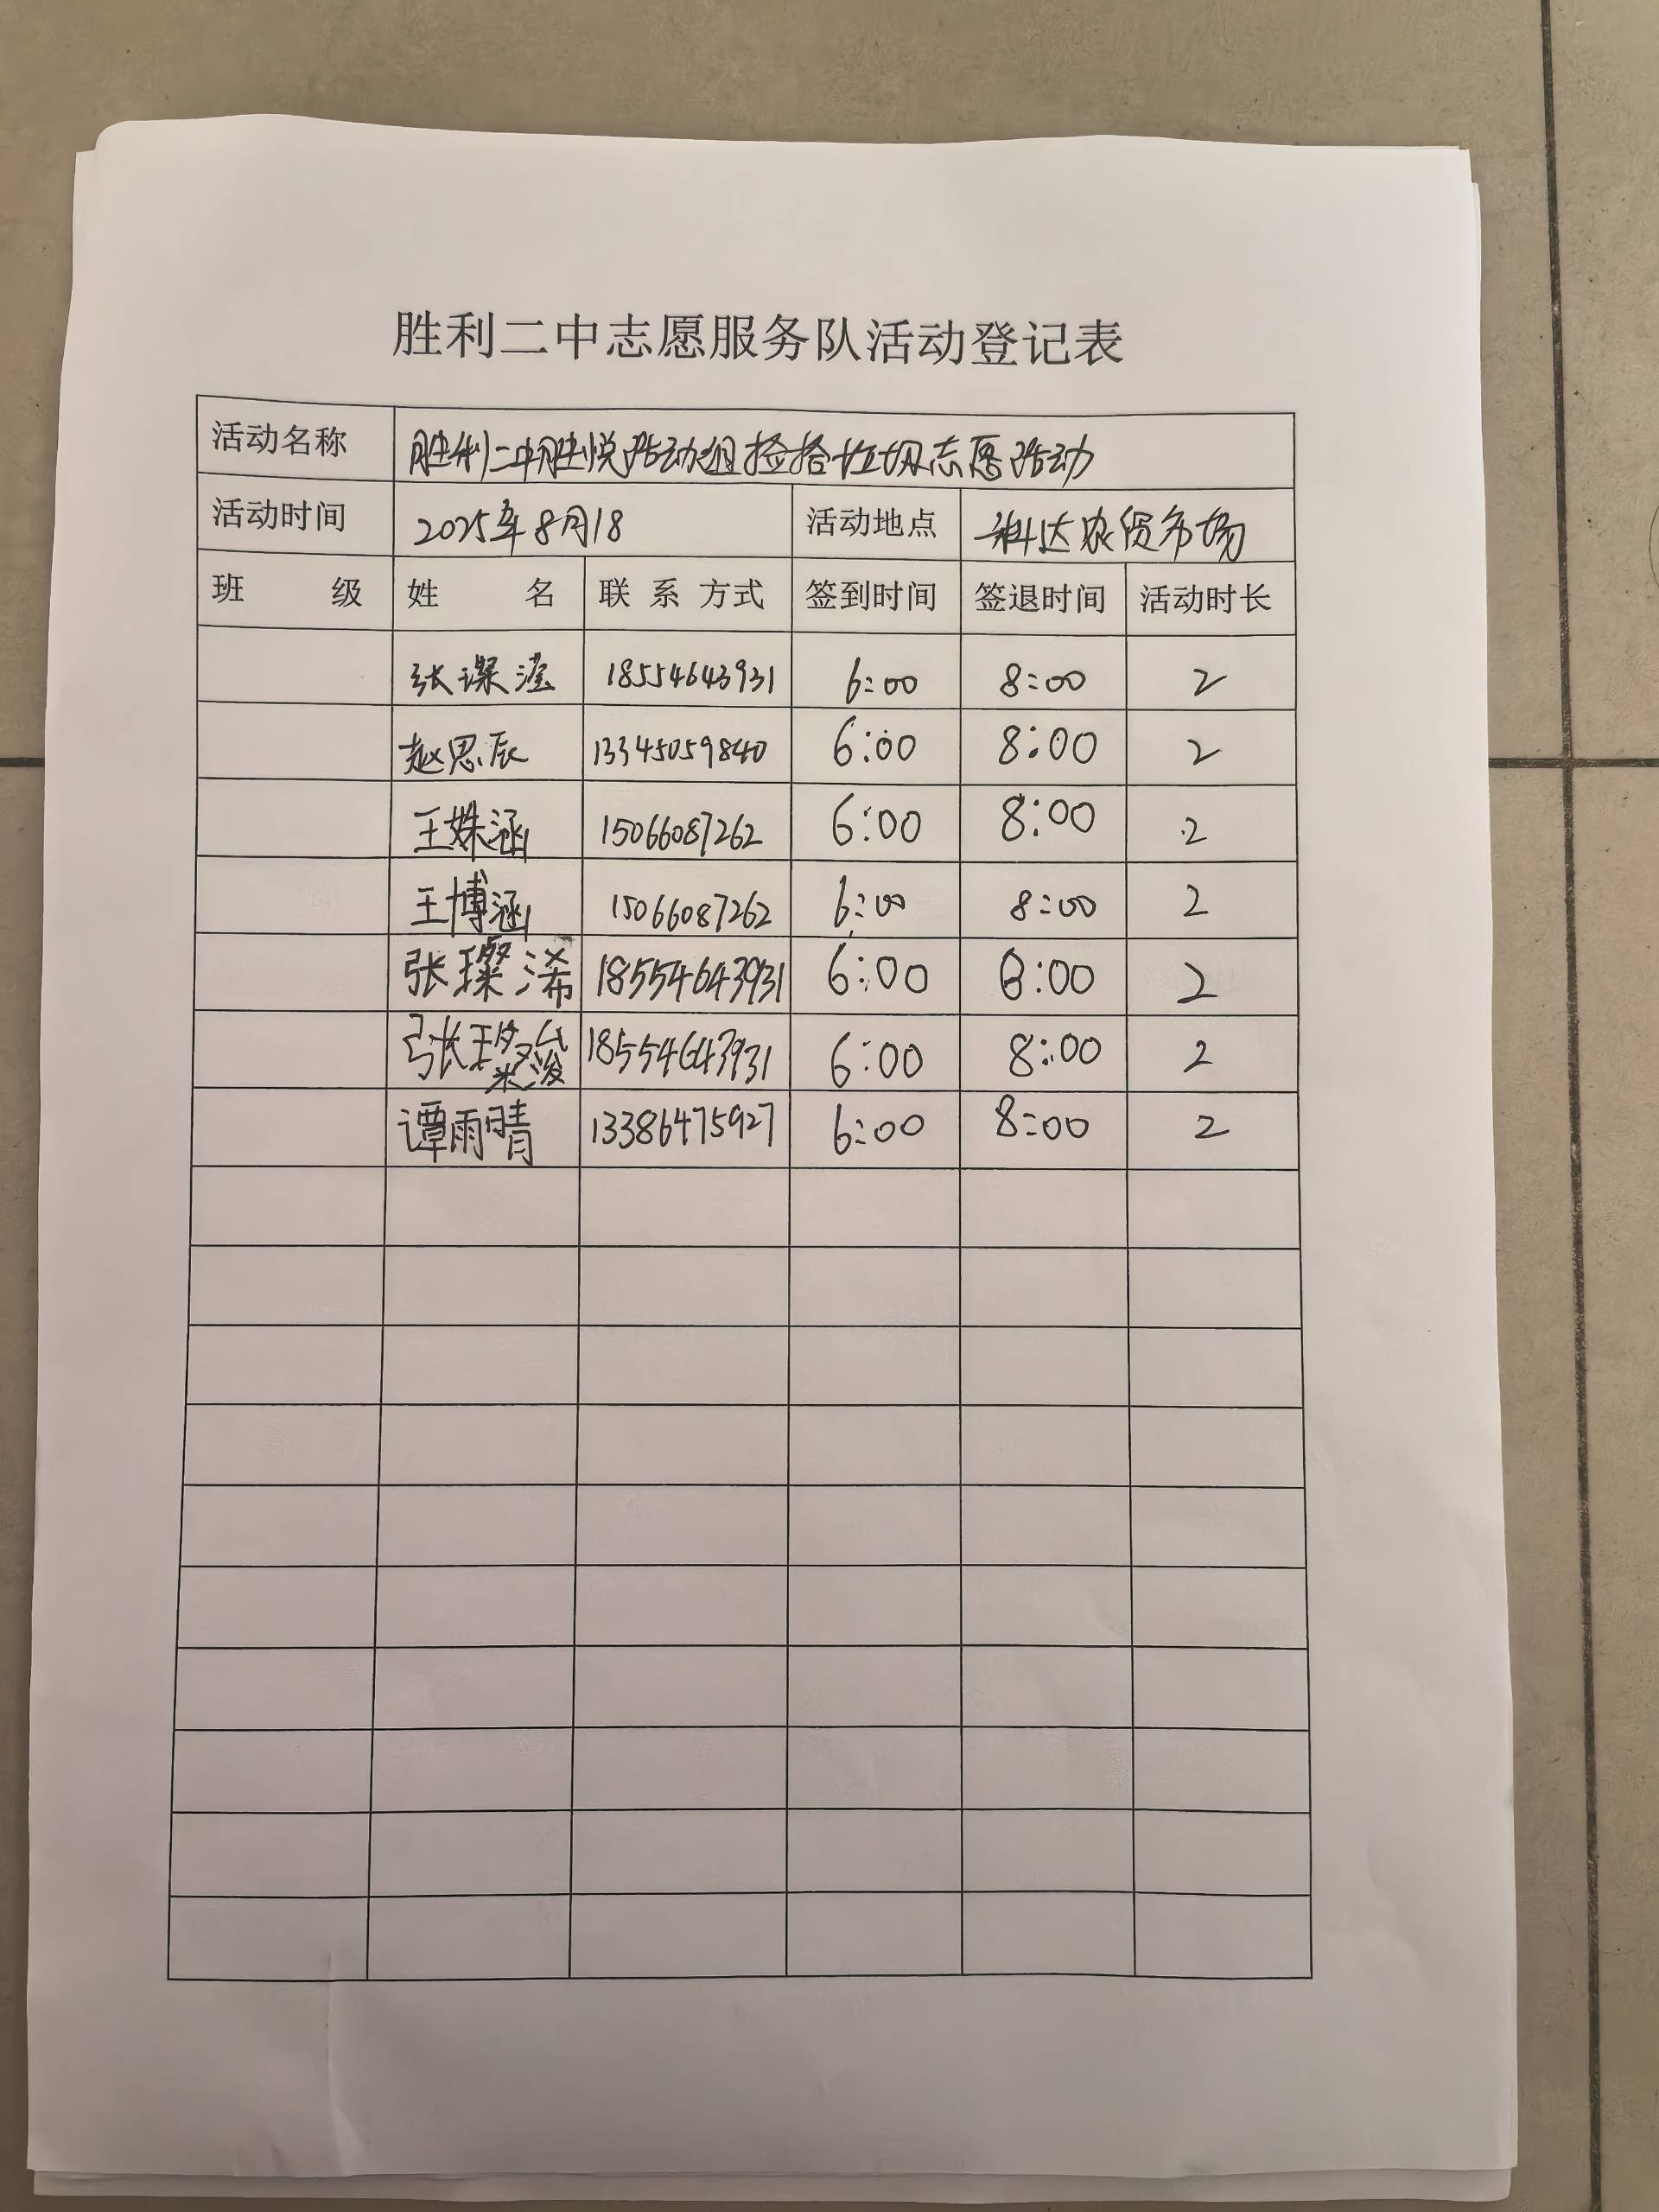 胜利二中志愿服务队活动登记表
活动名称 胜利二中胜悦活动组捡拾垃圾志愿活动
活动时间 2025年8月18 活动地点 科达农贸市场
班 级 姓 名 联 系 方式 签到时间 签退时间 活动时长
张 滢 18554643931 6:00 8:00 2
赵思辰 13345059840 6:00 8:00 2
王姝涵 15066087262 6:00 8:00 2
王博涵 15066087262 6:00 8:00 2
张璨浠 18554643931 6:00 8:00 2
张璨浚 18554643931 6:00 8:00 2
谭雨晴 13386475927 6:00 8:00 2